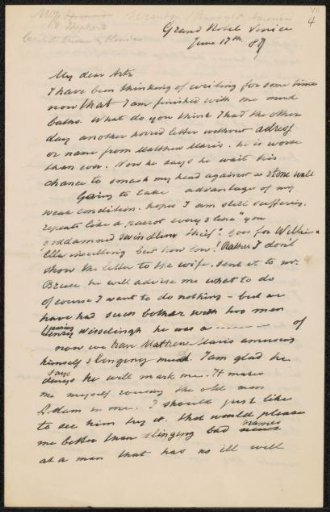 Grand Hotel Venice
June 17th 87
My dear Arts
I have been thinking of writing for some time
now that I am finished with the mud
baths. What do you think I had the other
day another horrid letter without adress
or name from Matthew Maris. he is worse
than ever. Now he says he wait his
chance to smash my head against a stone wall
Going to take advantage of my
weak condition. hopes I am still suffering.
repeats like a parrot every line "you
goddamned swindling thief".
Ella something but how low! Rather I don't
show the letter to the wife. send it to Mr.
he will advise me what to do
of course I want to do nothing – but we
have had such bother with this man
Wisselingh he was a of
now we have Matthew Maris annoying
himself slinging mud. I am glad he
says he will mark me. It makes
me myself the old man
Adam in me. I should just like
to see him try it. that would please
me better than slinging bad names
at a man that has no ill will